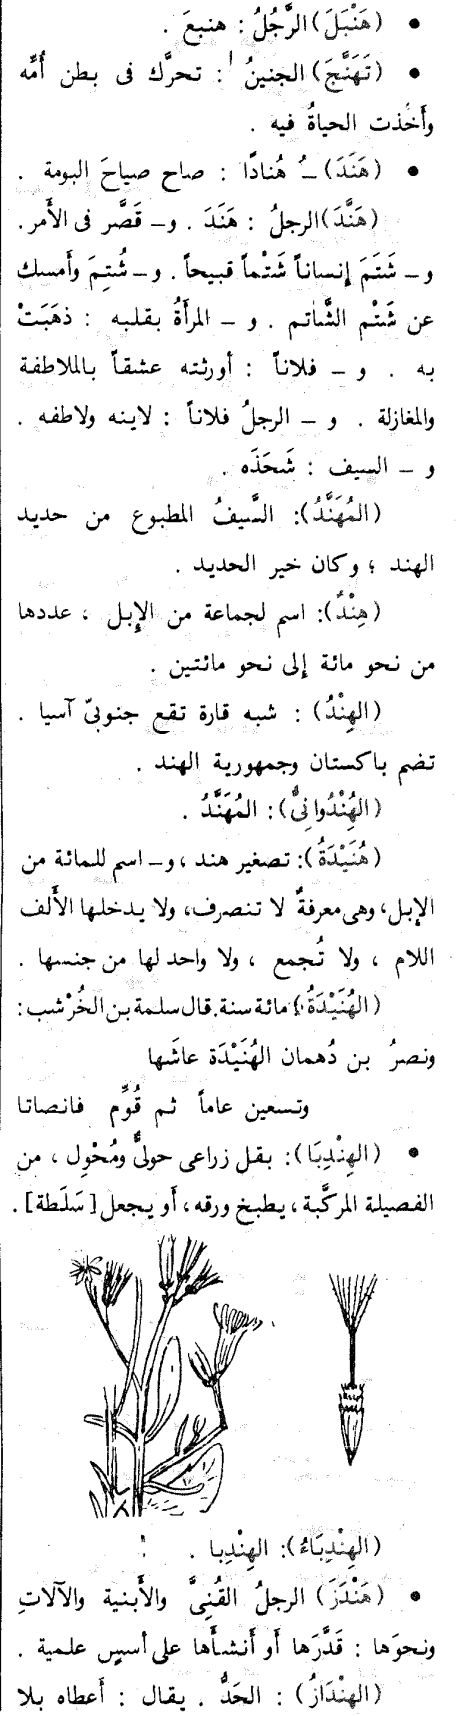 • (هَنْبَلَ) الرَّجُلُ : هنبعَ .
• (تَهَنَّجَ) الجنينُ : تحرَّك فى بطن أُمِّه
وأَخذت الحياةُ فيه .
• (هَنَدَ) ـُ هُنادًا : صاح صياحَ البومة .
(هَنَّدَ) الرجلُ : هَنَدَ . و ـ قَصَّر فى الأَمر .
و ـ شَتَمَ إِنساناً شَتْماً قبيحاً . و ـ شُتِمَ وأَمسك
عن شَتْم الشَّاتم . و ـ المرأَةُ بقلبه : ذهَبَتْ
به . و ـ فلاناً : أورثته عشقاً بالملاطفة
والمغازلة . و ـ الرجلُ فلاناً : لاينه ولاطفه .
و ـ السيف : شَحَذَه .
(المُهَنَّدُ): السَّيفُ المطبوع من حديد
الهند ؛ وكان خير الحديد .
(هِنْدٌ): اسم لجماعة من الإِبل ، عددها
من نحو مائة إلى نحو مائتين .
(الهِنْدُ) : شبه قارة تقع جنوبىّ آسيا .
تضم باكستان وجمهورية الهند .
(الهِنْدُوانِىُّ): المُهَنَّدُ .
(هُنَيْدَةُ): تصغير هند ، و ـ اسم للمائة من
الإبل، وهى معرفةٌ لا تنصرف، ولا يدخلها الأَلف
اللام ، ولا تُجمع ، ولا واحد لها من جنسها .
(الهُنَيْدَةُ): مائة سنة. قال سلمة بن الخُرْشب:
ونصرُ بن دُهمان الهُنَيْدَة عاشَها
وتسعين عاماً ثم قُوِّم فانصاتا
• (الهِنْدِبَا): بقل زراعى حولىٌّ ومُحْوِل ، من
الفصيلة المركَّبة، يطبخ ورقه، أَو يجعل [سَلَطة].
(الهِنْدِبَاءُ): الهِنْدِبا .
• (هَنْدَزَ) الرجلُ القُنِىَّ والأَبنية والآلاتِ
ونحوَها : قَدَّرَها أَو أَنشأَها على أسس علمية .
(الهِنْدَازُ) : الحَدُّ . يقال : أَعطاه بلا